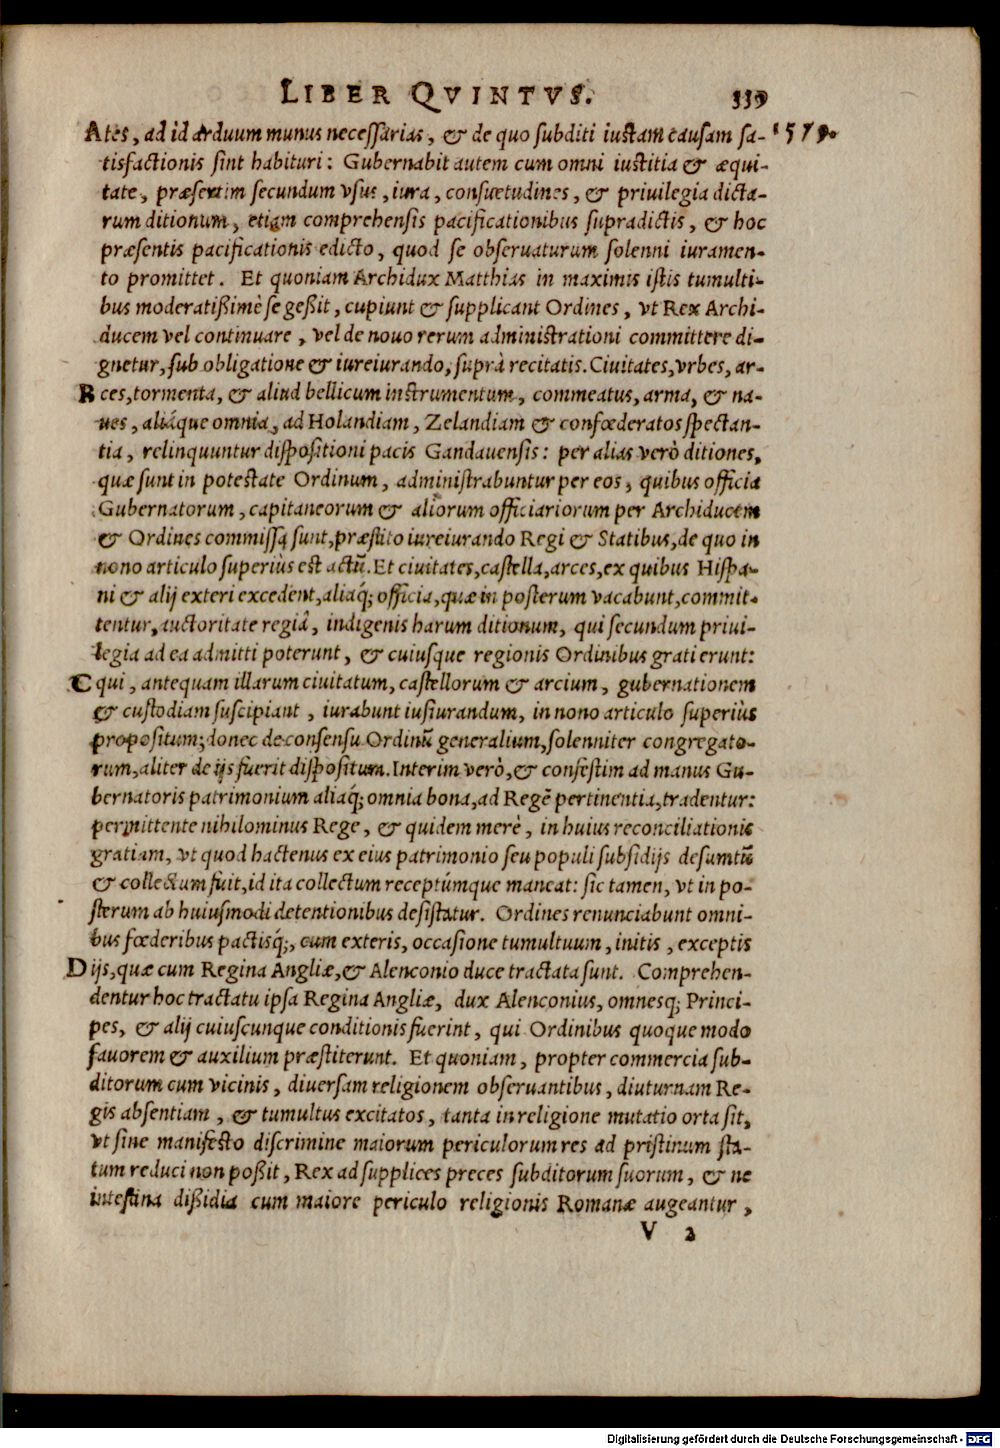 LIBER QVINTVS. 339
A tes, ad id arduum munus necessarias, & de quo subditi iustam causam sa- 1579.
tisfactionis sint habituri: Gubernabit autem cum omni iustitia & æqui-
tate, præsertim secundum vsus, iura, consuetudines, & priuilegia dicta-
rum ditionum, etiam comprehensis pacificationibus supradictis, & hoc
præsentis pacificationis edicto, quod se obseruaturum solenni iuramen-
to promittet. Et quoniam Archidux Matthias in maximis istis tumulti-
bus moderatißimè se geßit, cupiunt & supplicant Ordines, vt Rex Archi-
ducem vel continuare, vel de nouo rerum administrationi committere di-
gnetur, sub obligatione & iureiurando, suprà recitatis. Ciuitates, vrbes, ar-
B ces, tormenta, & aliud bellicum instrumentum, commeatus, arma, & na-
ues, aliáque omnia, ad Holandiam, Zelandiam & confœderatos spectan-
tia, relinquuntur dispositioni pacis Gandauensis: per alias verò ditiones,
quæ sunt in potestate Ordinum, administrabuntur per eos, quibus officia
Gubernatorum, capitaneorum & aliorum officiariorum per Archiducem
& Ordines commissa sunt, præstito iureiurando Regi & Statibus, de quo in
nono articulo superiùs est actũ. Et ciuitates, castella, arces, ex quibus Hispa-
ni & alij exteri excedent, aliaq́; officia, quæ in posterum vacabunt, commit-
tentur, auctoritate regiâ, indigenis harum ditionum, qui secundum priui-
legia ad ea admitti poterunt, & cuiusque regionis Ordinibus grati erunt:
C qui, antequam illarum ciuitatum, castellorum & arcium, gubernationem
& custodiam suscipiant, iurabunt iusiurandum, in nono articulo superiùs
propositum; donec de consensu Ordinũ generalium, solenniter congregato-
rum, aliter de ijs fuerit dispositum. Interim verò, & confestim ad manus Gu-
bernatoris patrimonium aliaq́; omnia bona, ad Regẽ pertinentia, tradentur:
permittente nihilominus Rege, & quidem merè, in huius reconciliationis
gratiam, vt quod hactenus ex eius patrimonio seu populi subsidijs desumtũ
& collectum fuit, id ita collectum receptúmque maneat: sic tamen, vt in po-
sterum ab huiusmodi detentionibus desistatur. Ordines renunciabunt omni-
bus fœderibus pactisq́;, cum exteris, occasione tumultuum, initis, exceptis
D ijs, quæ cum Regina Angliæ, & Alenconio duce tractata sunt. Comprehen-
dentur hoc tractatu ipsa Regina Angliæ, dux Alenconius, omnesq́; Princi-
pes, & alij cuiuscunque conditionis fuerint, qui Ordinibus quoque modo
fauorem & auxilium præstiterunt. Et quoniam, propter commercia sub-
ditorum cum vicinis, diuersam religionem obseruantibus, diuturnam Re-
gis absentiam, & tumultus excitatos, tanta in religione mutatio orta sit,
vt sine manifesto discrimine maiorum periculorum res ad pristinum sta-
tum reduci non poßit, Rex ad supplices preces subditorum suorum, & ne
intestina dißidia cum maiore periculo religionis Romanæ augeantur,
V 2
Digitalisierung gefördert durch die Deutsche Forschungsgemeinschaft - DFG